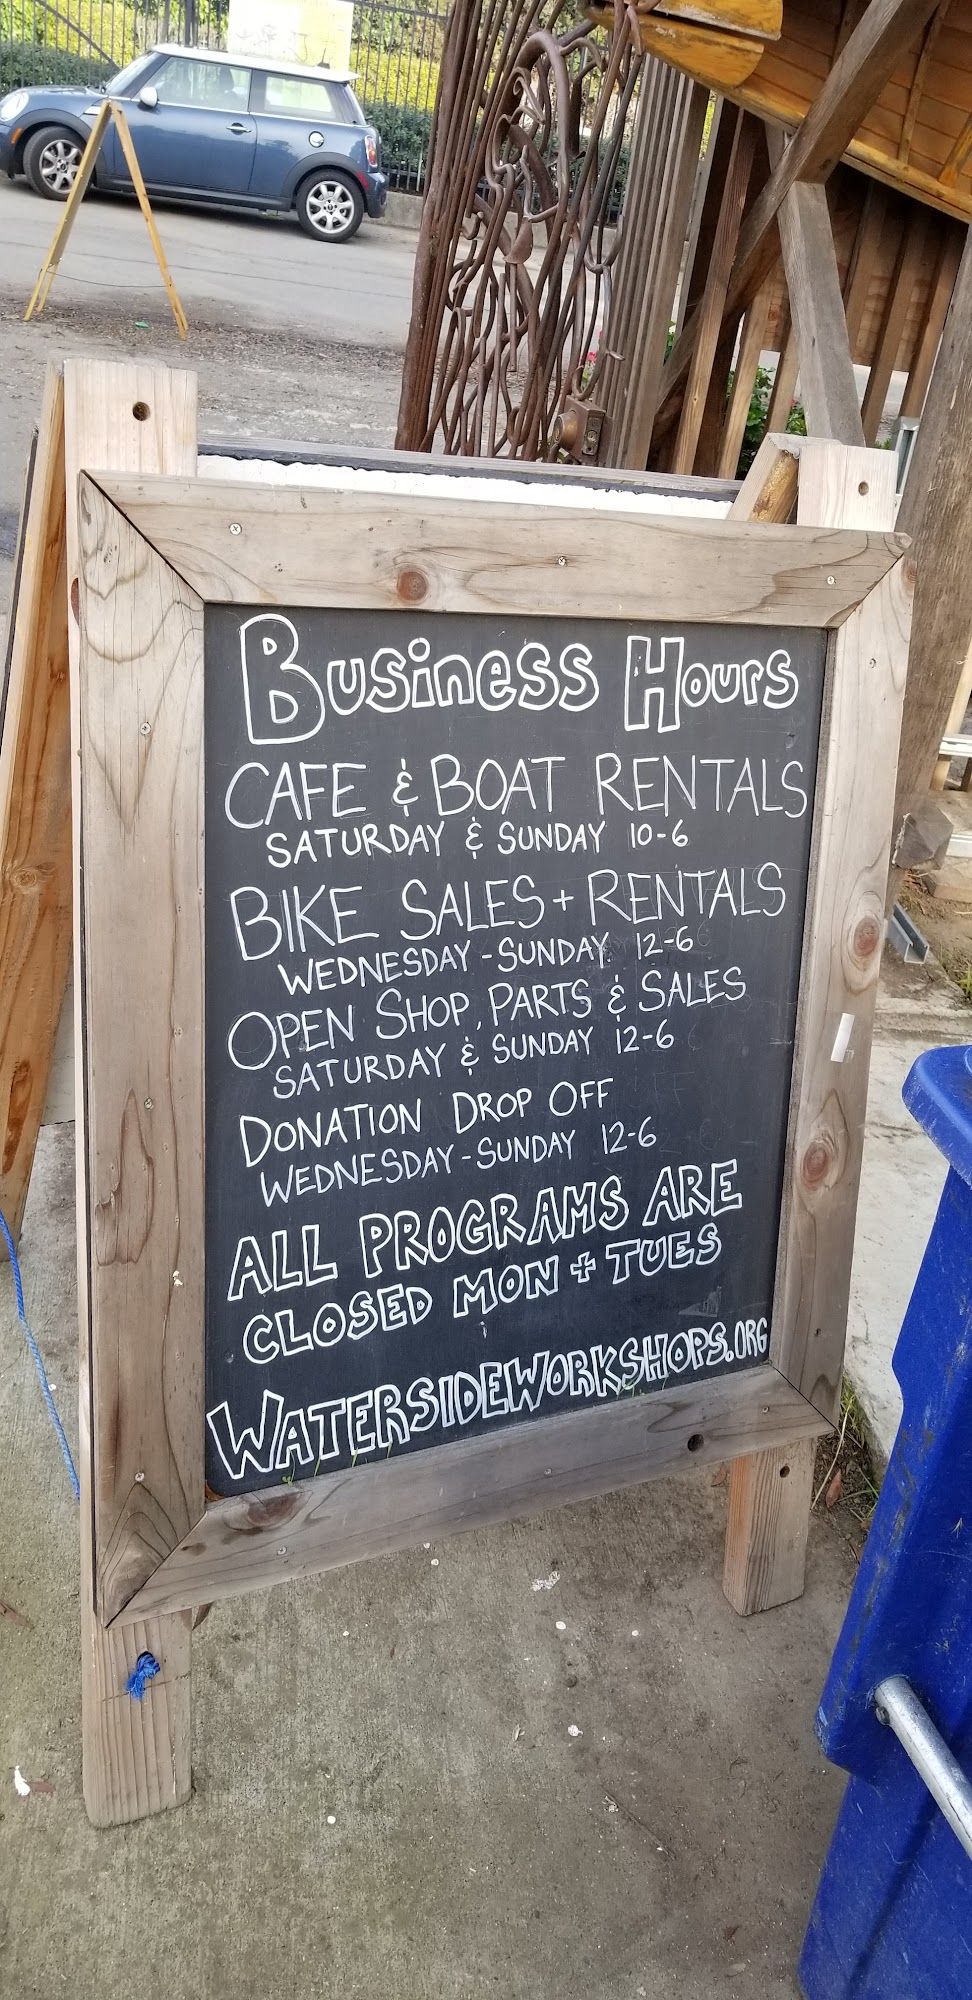 Business Hours
CAFE & BOAT RENTALS
SATURDAY & SUNDAY 10-6
BIKE SALES + RENTALS
WEDNESDAY - SUNDAY 12-6
OPEN SHOP, PARTS & SALES
SATURDAY & SUNDAY 12-6
DONATION DROP OFF
WEDNESDAY - SUNDAY 12-6
ALL PROGRAMS ARE
CLOSED MON + TUES
WATERSIDEWORKSHOPS.ORG